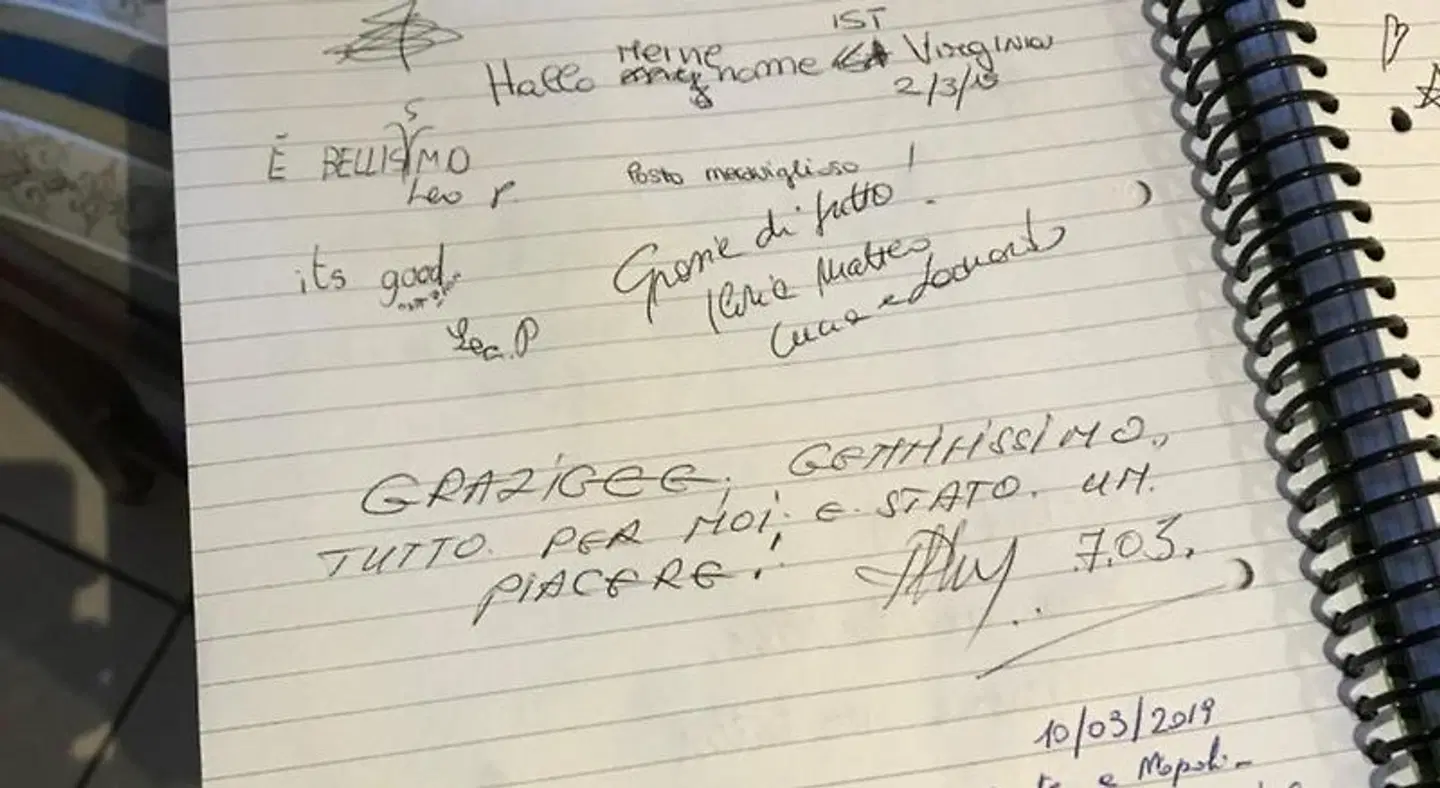 Hallo Meine name IST Virginia
2/3/19
È BELLISSIMO
Leo P.
Posto meraviglioso!
its good
Grazie di tutto.
Leo.P
Ilaria Matteo
Lucia e Leonardo
GRAZIGEE, GENTILISSIMO,
TUTTO. PER NOI. E. STATO. UN.
PIACERE!
7.03.
10/03/2019
e Napoli